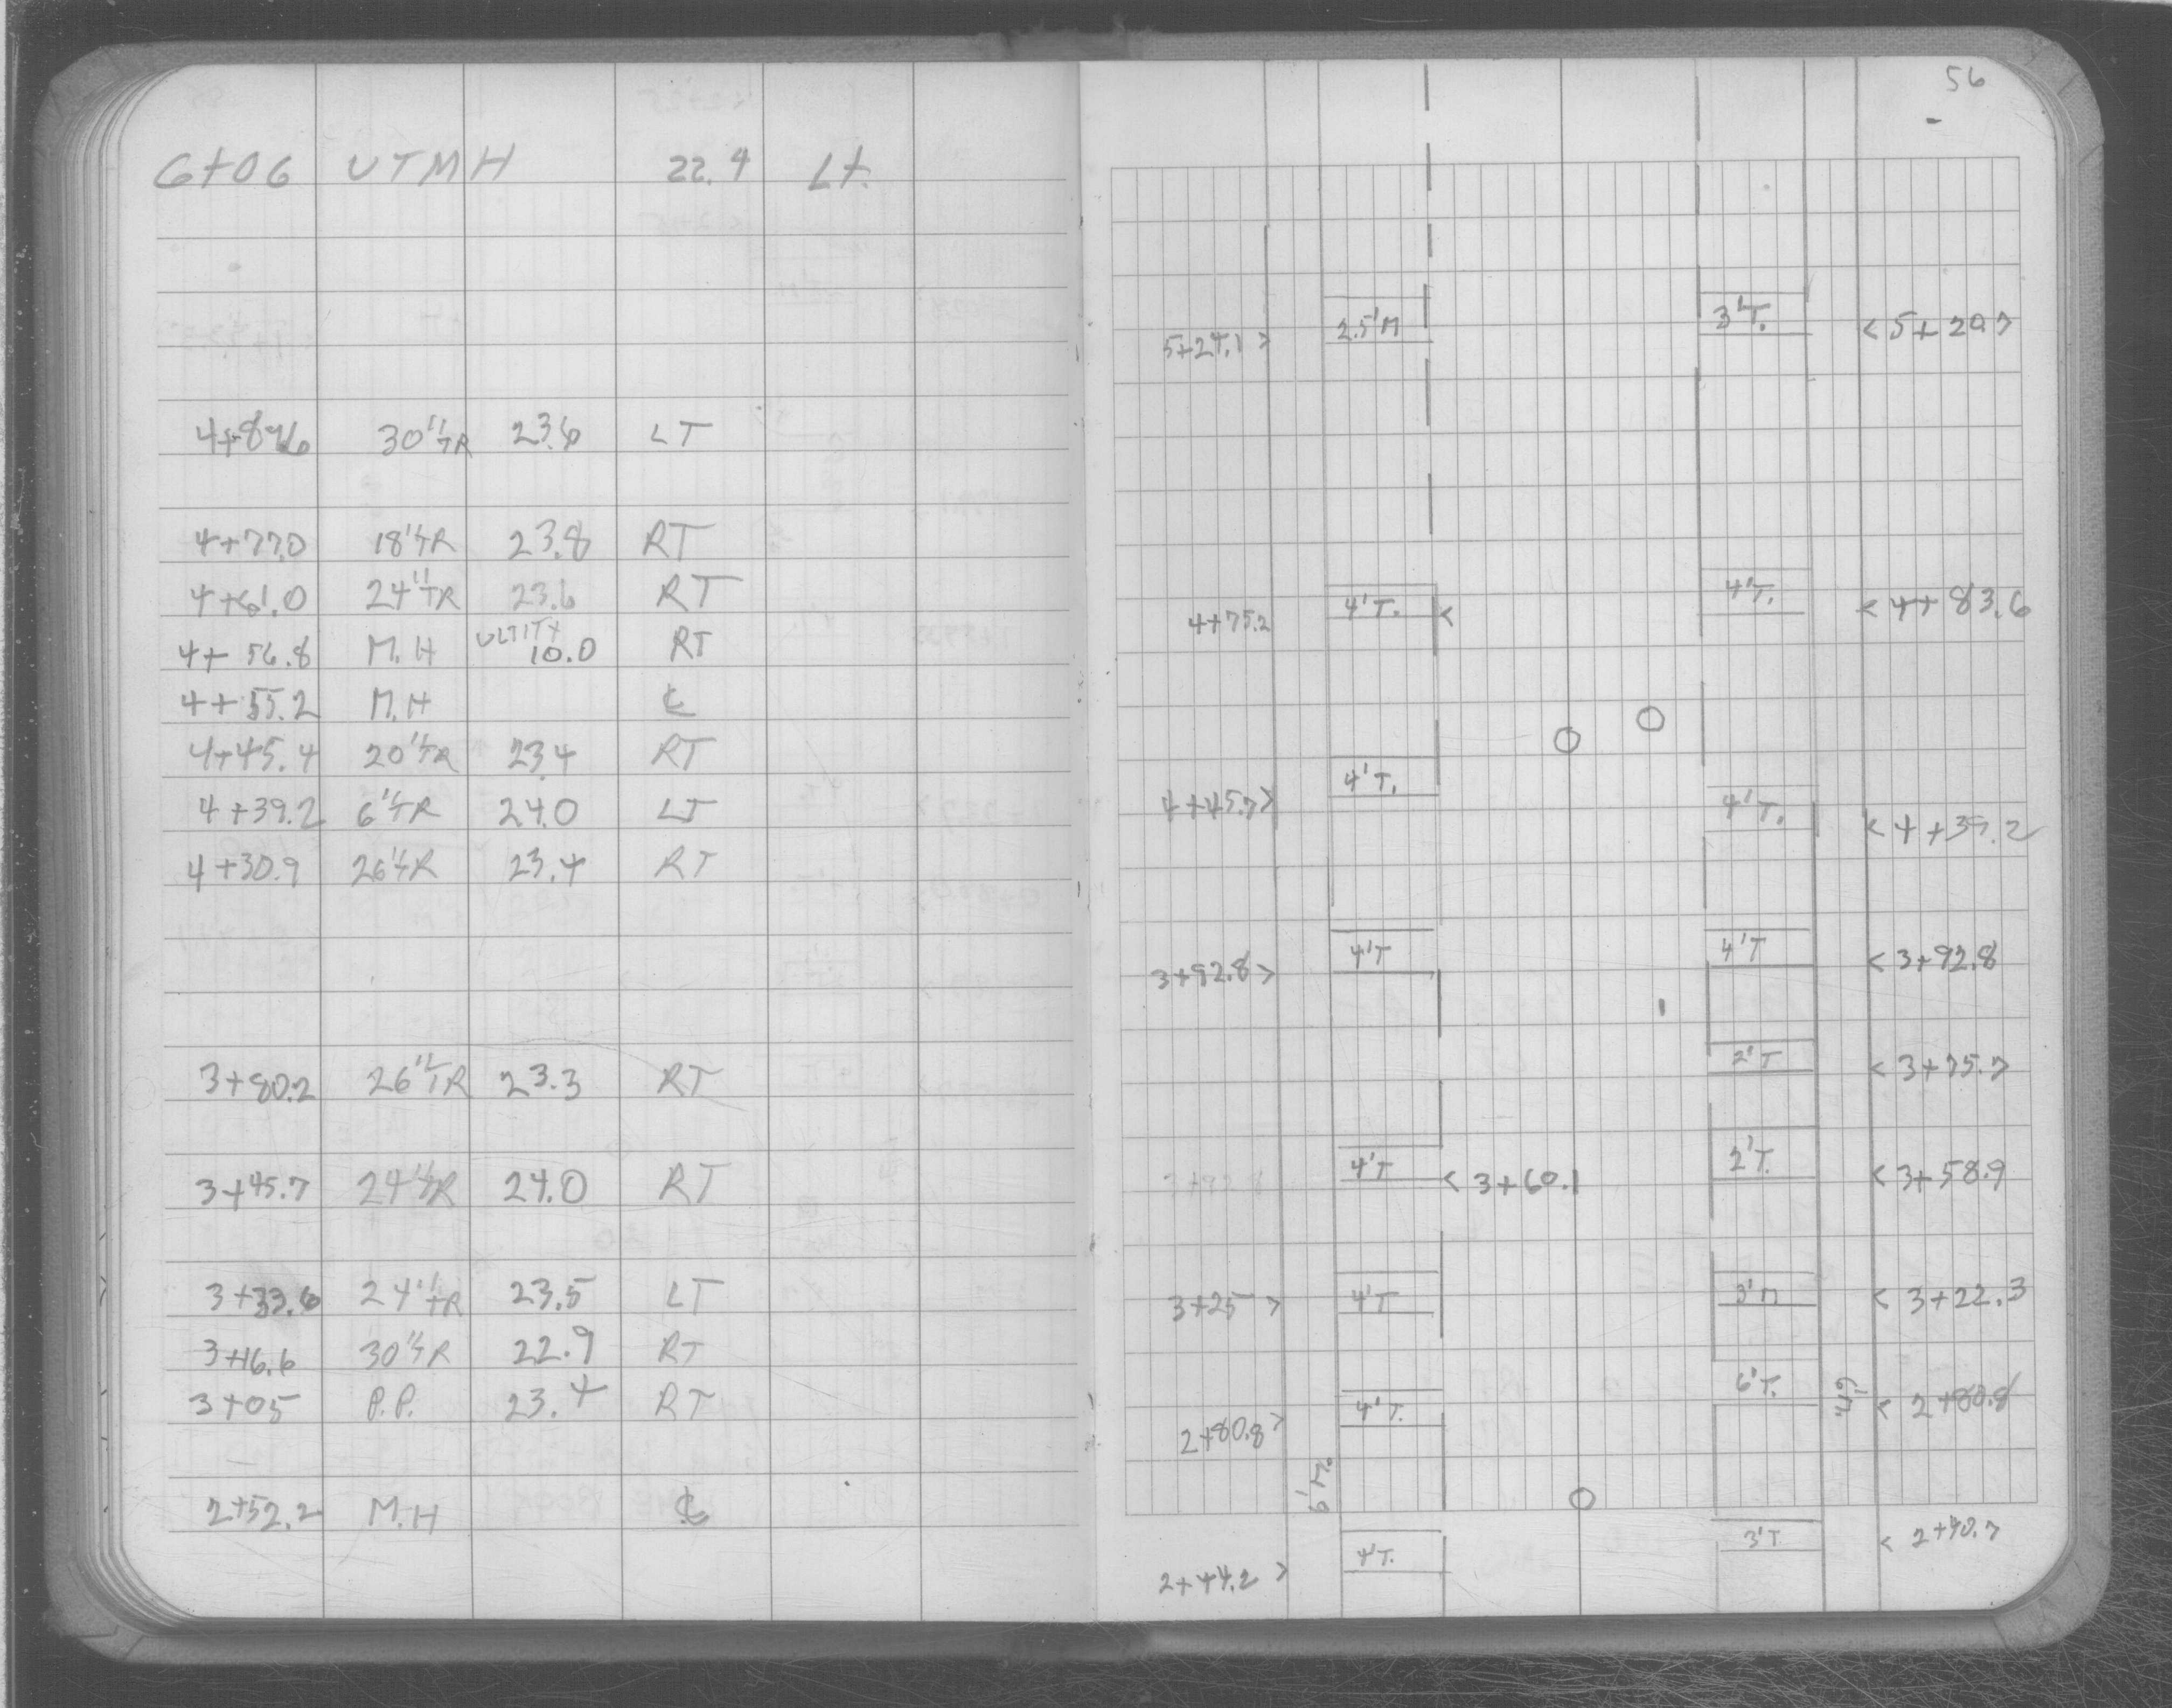 6+06 UTMH 22.4 Lt.
30" TR 23.6 LT
4+77.0 18" TR 23.8 RT
4+61.0 24" TR 23.6 RT
4+56.8 M.H ULTITY 10.0 RT
4+55.2 M.H ℄
4+45.4 20" TR 23.4 RT
4+39.2 6" TR 24.0 LT
4+30.9 26" TR 23.4 RT
3+80.2 26" TR 23.3 RT
3+45.7 24" TR 24.0 RT
3+33.6 24" TR 23.5 LT
3+16.6 30" TR 22.9 RT
3+05 P.P. 23.4 RT
2+52.2 M.H ℄
56
5+27.1 > 2.5'M 3'T. < 5+20.7
4+75.2 4'T. < 4'T. < 4+83.6
4+45.7 > 4'T. 4'T. < 4+39.2
3+92.8 > 4'T 4'T < 3+92.8
2'T < 3+75.7
4'T < 3+60.1 2'T. < 3+58.9
3+25 > 4'T 3'M < 3+22.3
2+80.8 > 4'T. 6'T. < 2+80.8
6'M.
2+44.2 > 4'T. 3'T. < 2+40.7